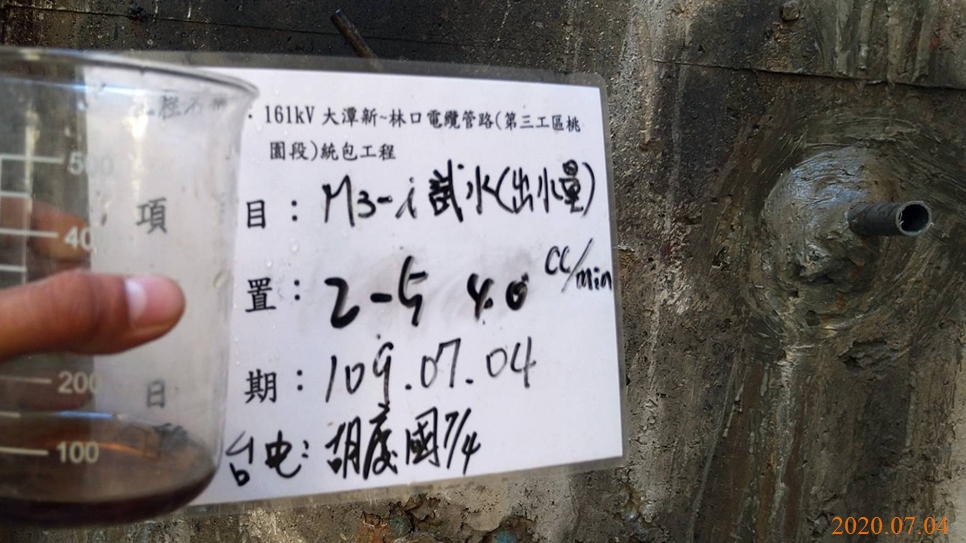 161kV 大潭新~林口電纜管路(第三工區桃
園段)統包工程
項目：M3-i 試水(出水量)
置：2-5 40 cc/min
日期：109.07.04
台电：胡慶國 7/4
500
400
200
100
2020.07.04